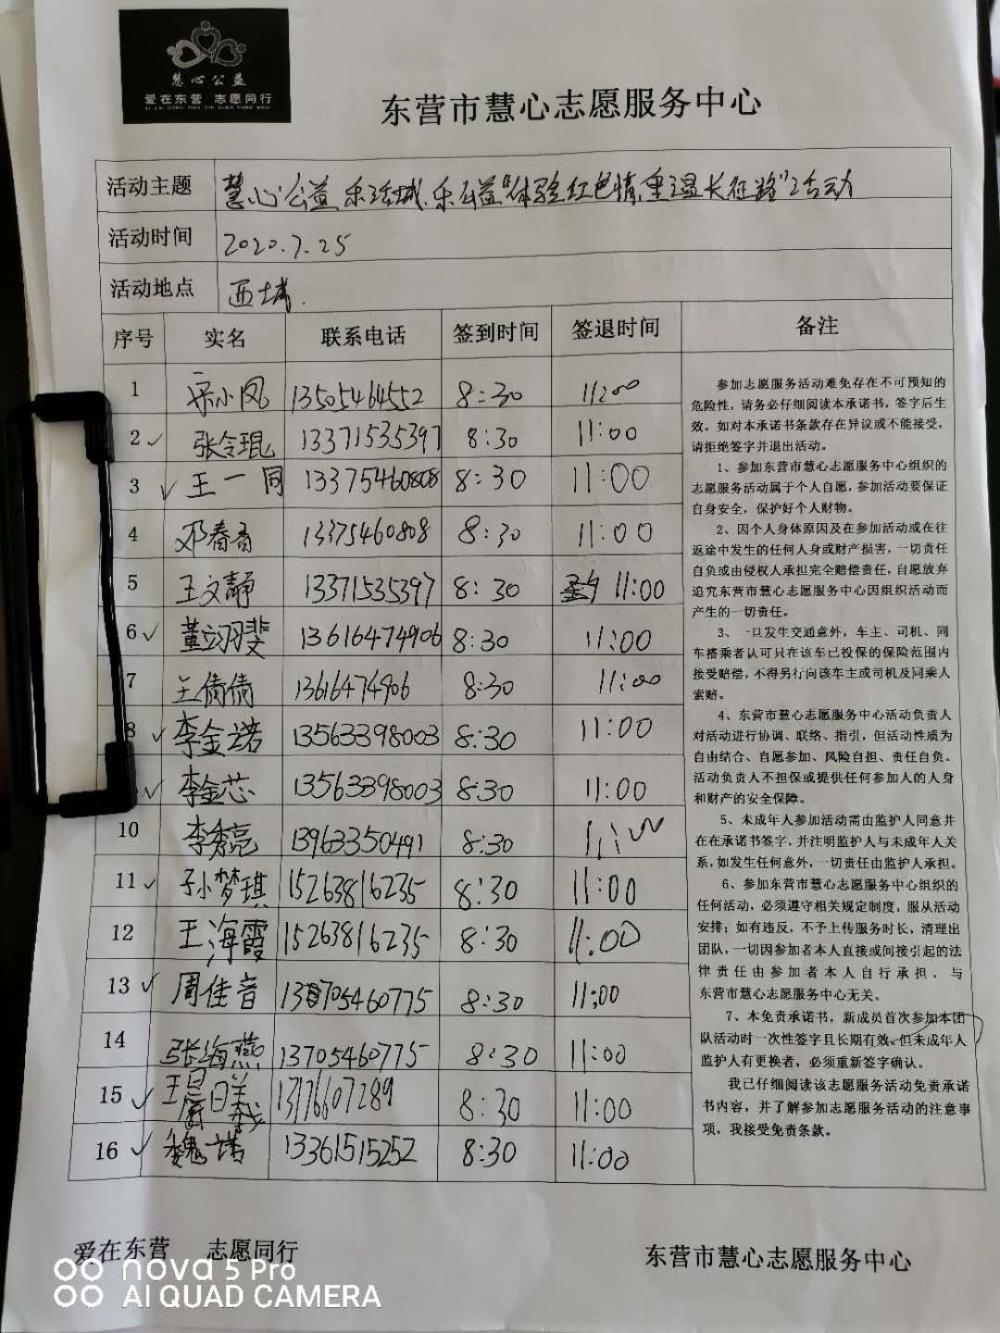 慧心公益
爱在东营 志愿同行
东营市慧心志愿服务中心
活动主题 慧心公益 乐活城、乐公益"体验红色情,重温长征路"活动
活动时间 2020.7.25
活动地点 西城.
序号 实名 联系电话 签到时间 签退时间 备注
1 宋小凤 13505464552 8:30 11:00
2 ✓ 张令琨 13371535397 8:30 11:00
3 ✓ 王一同 13375460808 8:30 11:00
4 邓春香 13375460808 8:30 11:00
5 王文静 13371535397 8:30 11:00
6 ✓ 董翊斐 13616474906 8:30 11:00
7 王倩倩 13616474906 8:30 11:00
8 ✓ 李金诺 13563398003 8:30 11:00
✓ 李金芯 13563398003 8:30 11:00
10 李秀亮 13963350491 8:30
11 ✓ 孙梦琪 15263816235 8:30 11:00
12 王海霞 15263816235 8:30 11:00
13 ✓ 周佳音 13705460775 8:30 11:00
14 张海燕 13705460775 8:30 11:00
15 ✓ 王 13176607289 8:30 11:00
16 ✓ 魏诺 13361515252 8:30 11:00
参加志愿服务活动难免存在不可预知的
危险性,请务必仔细阅读本承诺书,签字后生
效。如对本承诺书条款存在异议或不能接受,
请拒绝签字并退出活动。
1、参加东营市慧心志愿服务中心组织的
志愿服务活动属于个人自愿,参加活动要保证
自身安全,保护好个人财物。
2、因个人身体原因及在参加活动或在往
返途中发生的任何人身或财产损害,一切责任
自负或由侵权人承担完全赔偿责任,自愿放弃
追究东营市慧心志愿服务中心因组织活动而
产生的一切责任。
3、一旦发生交通意外,车主、司机、同
车搭乘者认可只在该车已投保的保险范围内
接受赔偿,不得另行向该车主或司机及同乘人
索赔。
4、东营市慧心志愿服务中心活动负责人
对活动进行协调、联络、指引,但活动性质为
自由结合、自愿参加、风险自担、责任自负。
活动负责人不担保或提供任何参加人的人身
和财产的安全保障。
5、未成年人参加活动需由监护人同意并
在在承诺书签字,并注明监护人与未成年人关
系,如发生任何意外,一切责任由监护人承担。
6、参加东营市慧心志愿服务中心组织的
任何活动,必须遵守相关规定制度,服从活动
安排;如有违反,不予上传服务时长,清理出
团队,一切因参加者本人直接或间接引起的法
律责任由参加者本人自行承担,与
东营市慧心志愿服务中心无关。
7、本免责承诺书,新成员首次参加本团
队活动时一次性签字且长期有效。但未成年人
监护人有更换者,必须重新签字确认。
我已仔细阅读该志愿服务活动免责承诺
书内容,并了解参加志愿服务活动的注意事
项,我接受免责条款。
爱在东营 志愿同行 东营市慧心志愿服务中心
nova 5 Pro
AI QUAD CAMERA